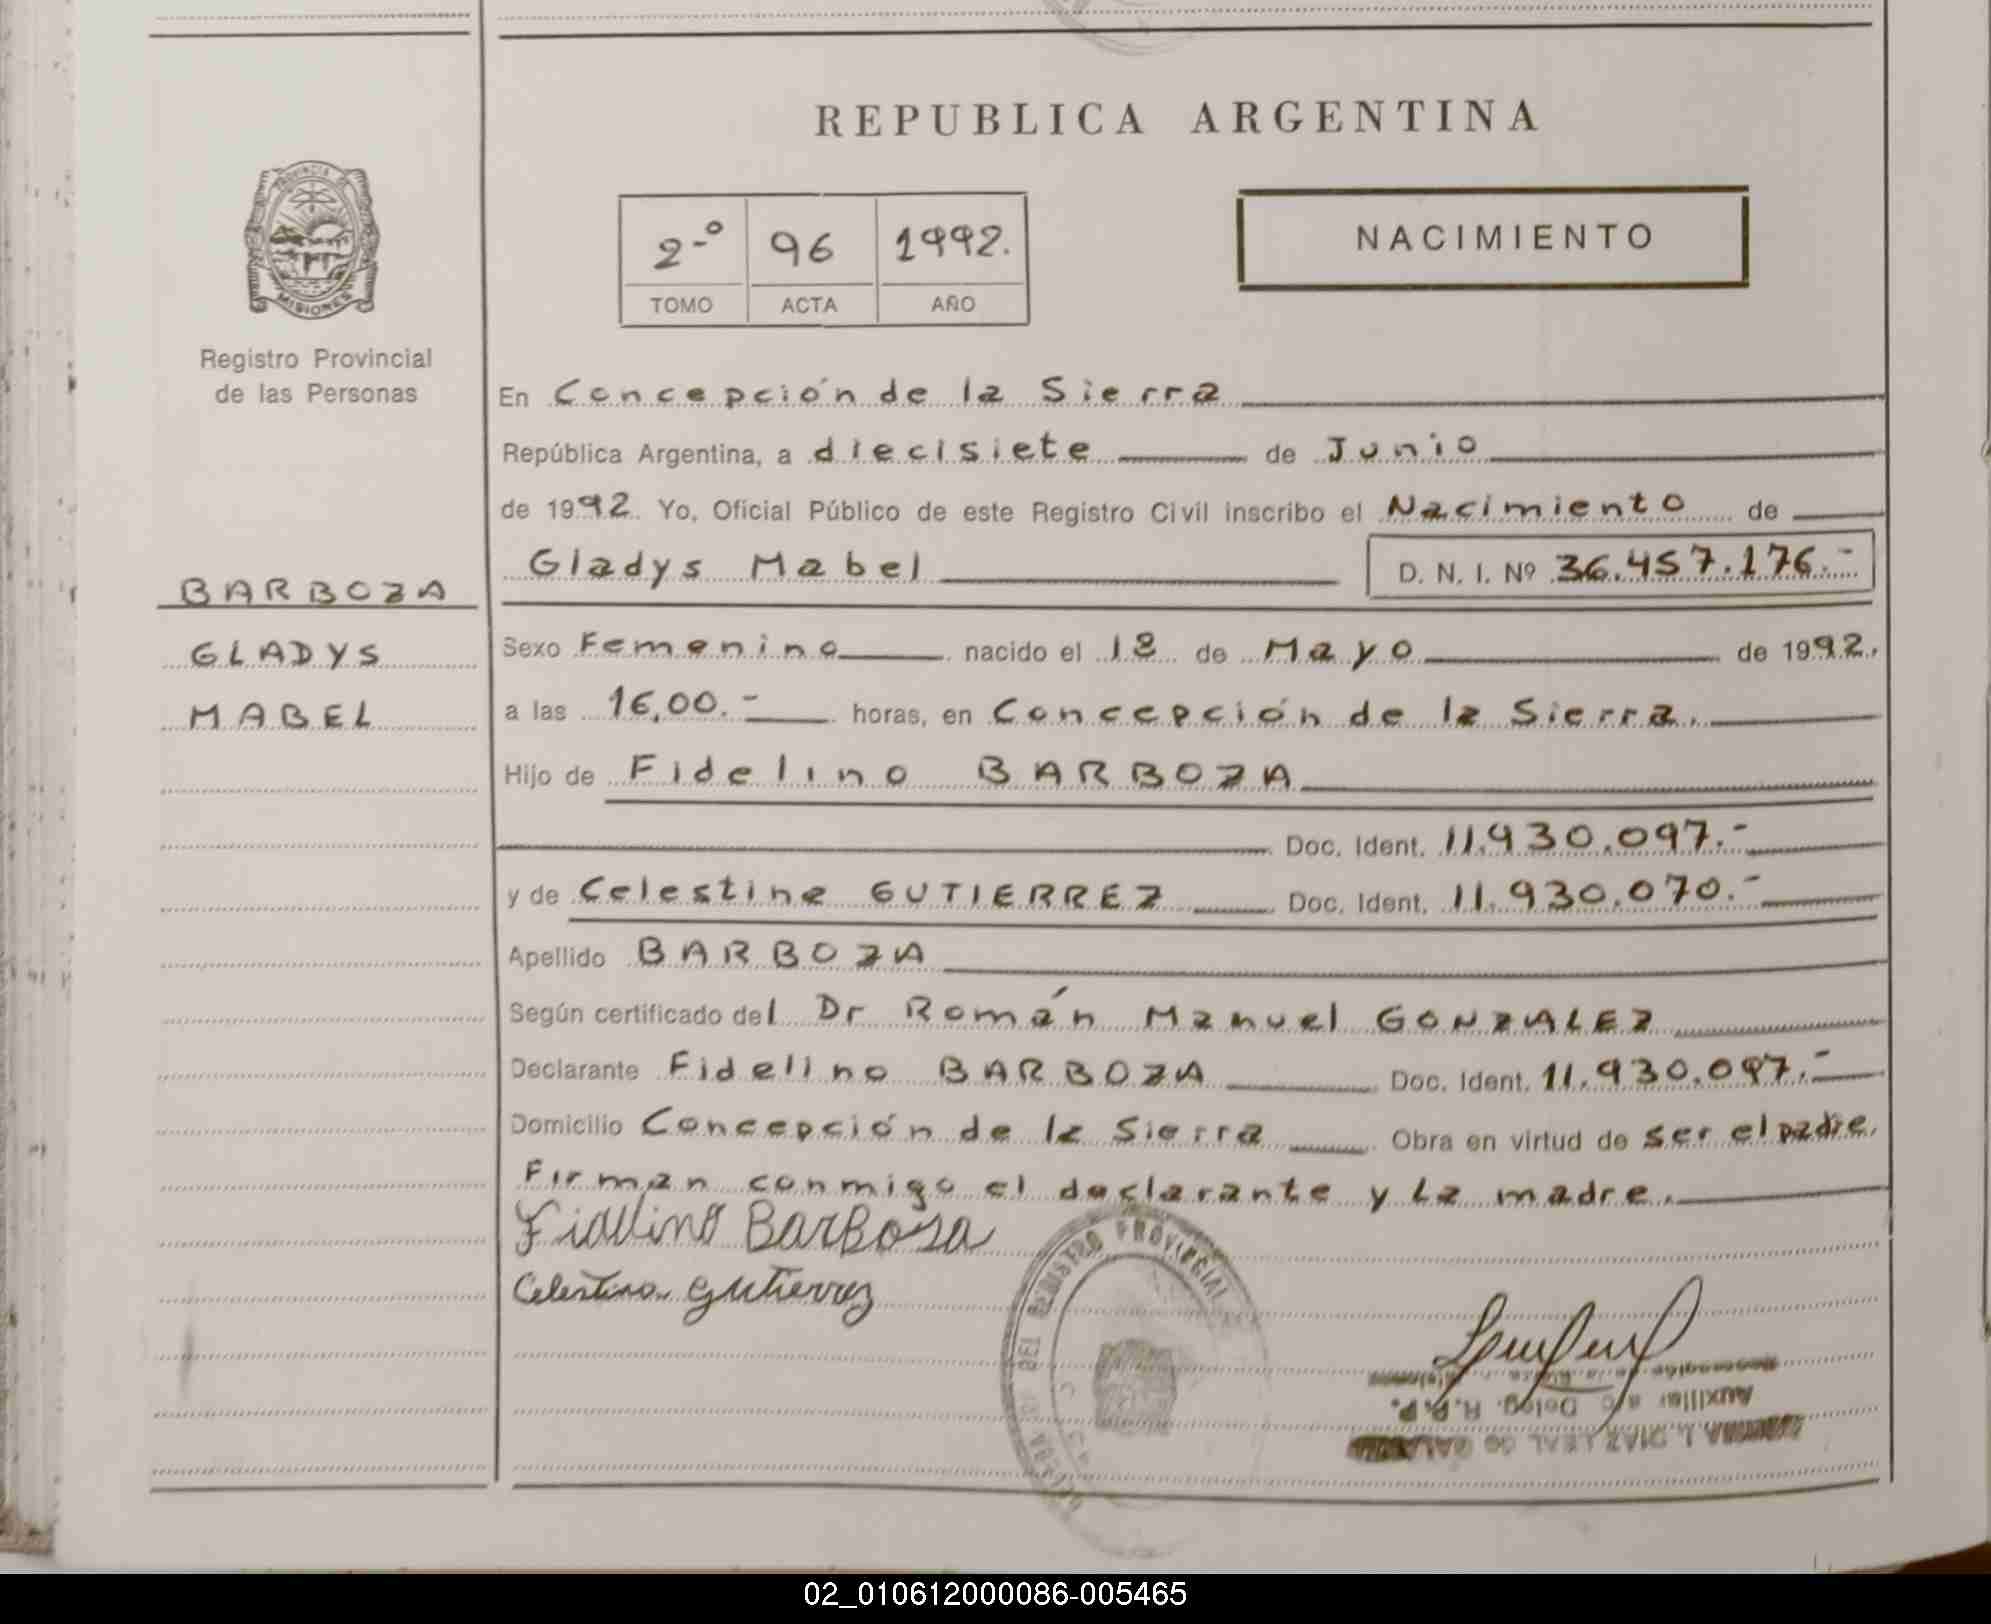 REPUBLICA ARGENTINA
PROVINCIA DE
MISIONES
Registro Provincial
de las Personas
2-º 96 1992.
TOMO ACTA AÑO
NACIMIENTO
BARBOZA
GLADYS
MABEL
En Concepción de la Sierra
República Argentina, a diecisiete de Junio
de 1992. Yo, Oficial Público de este Registro Civil inscribo el Nacimiento de
Gladys Mabel D. N. I. Nº 36.457.176.-
Sexo Femenino nacido el 18 de Mayo de 1992.
a las 16,00.- horas, en Concepción de la Sierra.
Hijo de Fidelino BARBOZA
Doc. Ident. 11.930.097.-
y de Celestina GUTIERREZ Doc. Ident. 11.930.070.-
Apellido BARBOZA
Según certificado del Dr Román Manuel GONZALEZ
Declarante Fidelino BARBOZA Doc. Ident. 11.930.097.-
Domicilio Concepción de la Sierra Obra en virtud de ser el padre.
Firman conmigo el declarante y La madre.
Fidelino Barbosa
Celestina Gutierrez
DEL REGISTRO PROVINCIAL
Auxiliar a/c Deleg. R.P.P.
DIAZ LEAL de
02_010612000086-005465